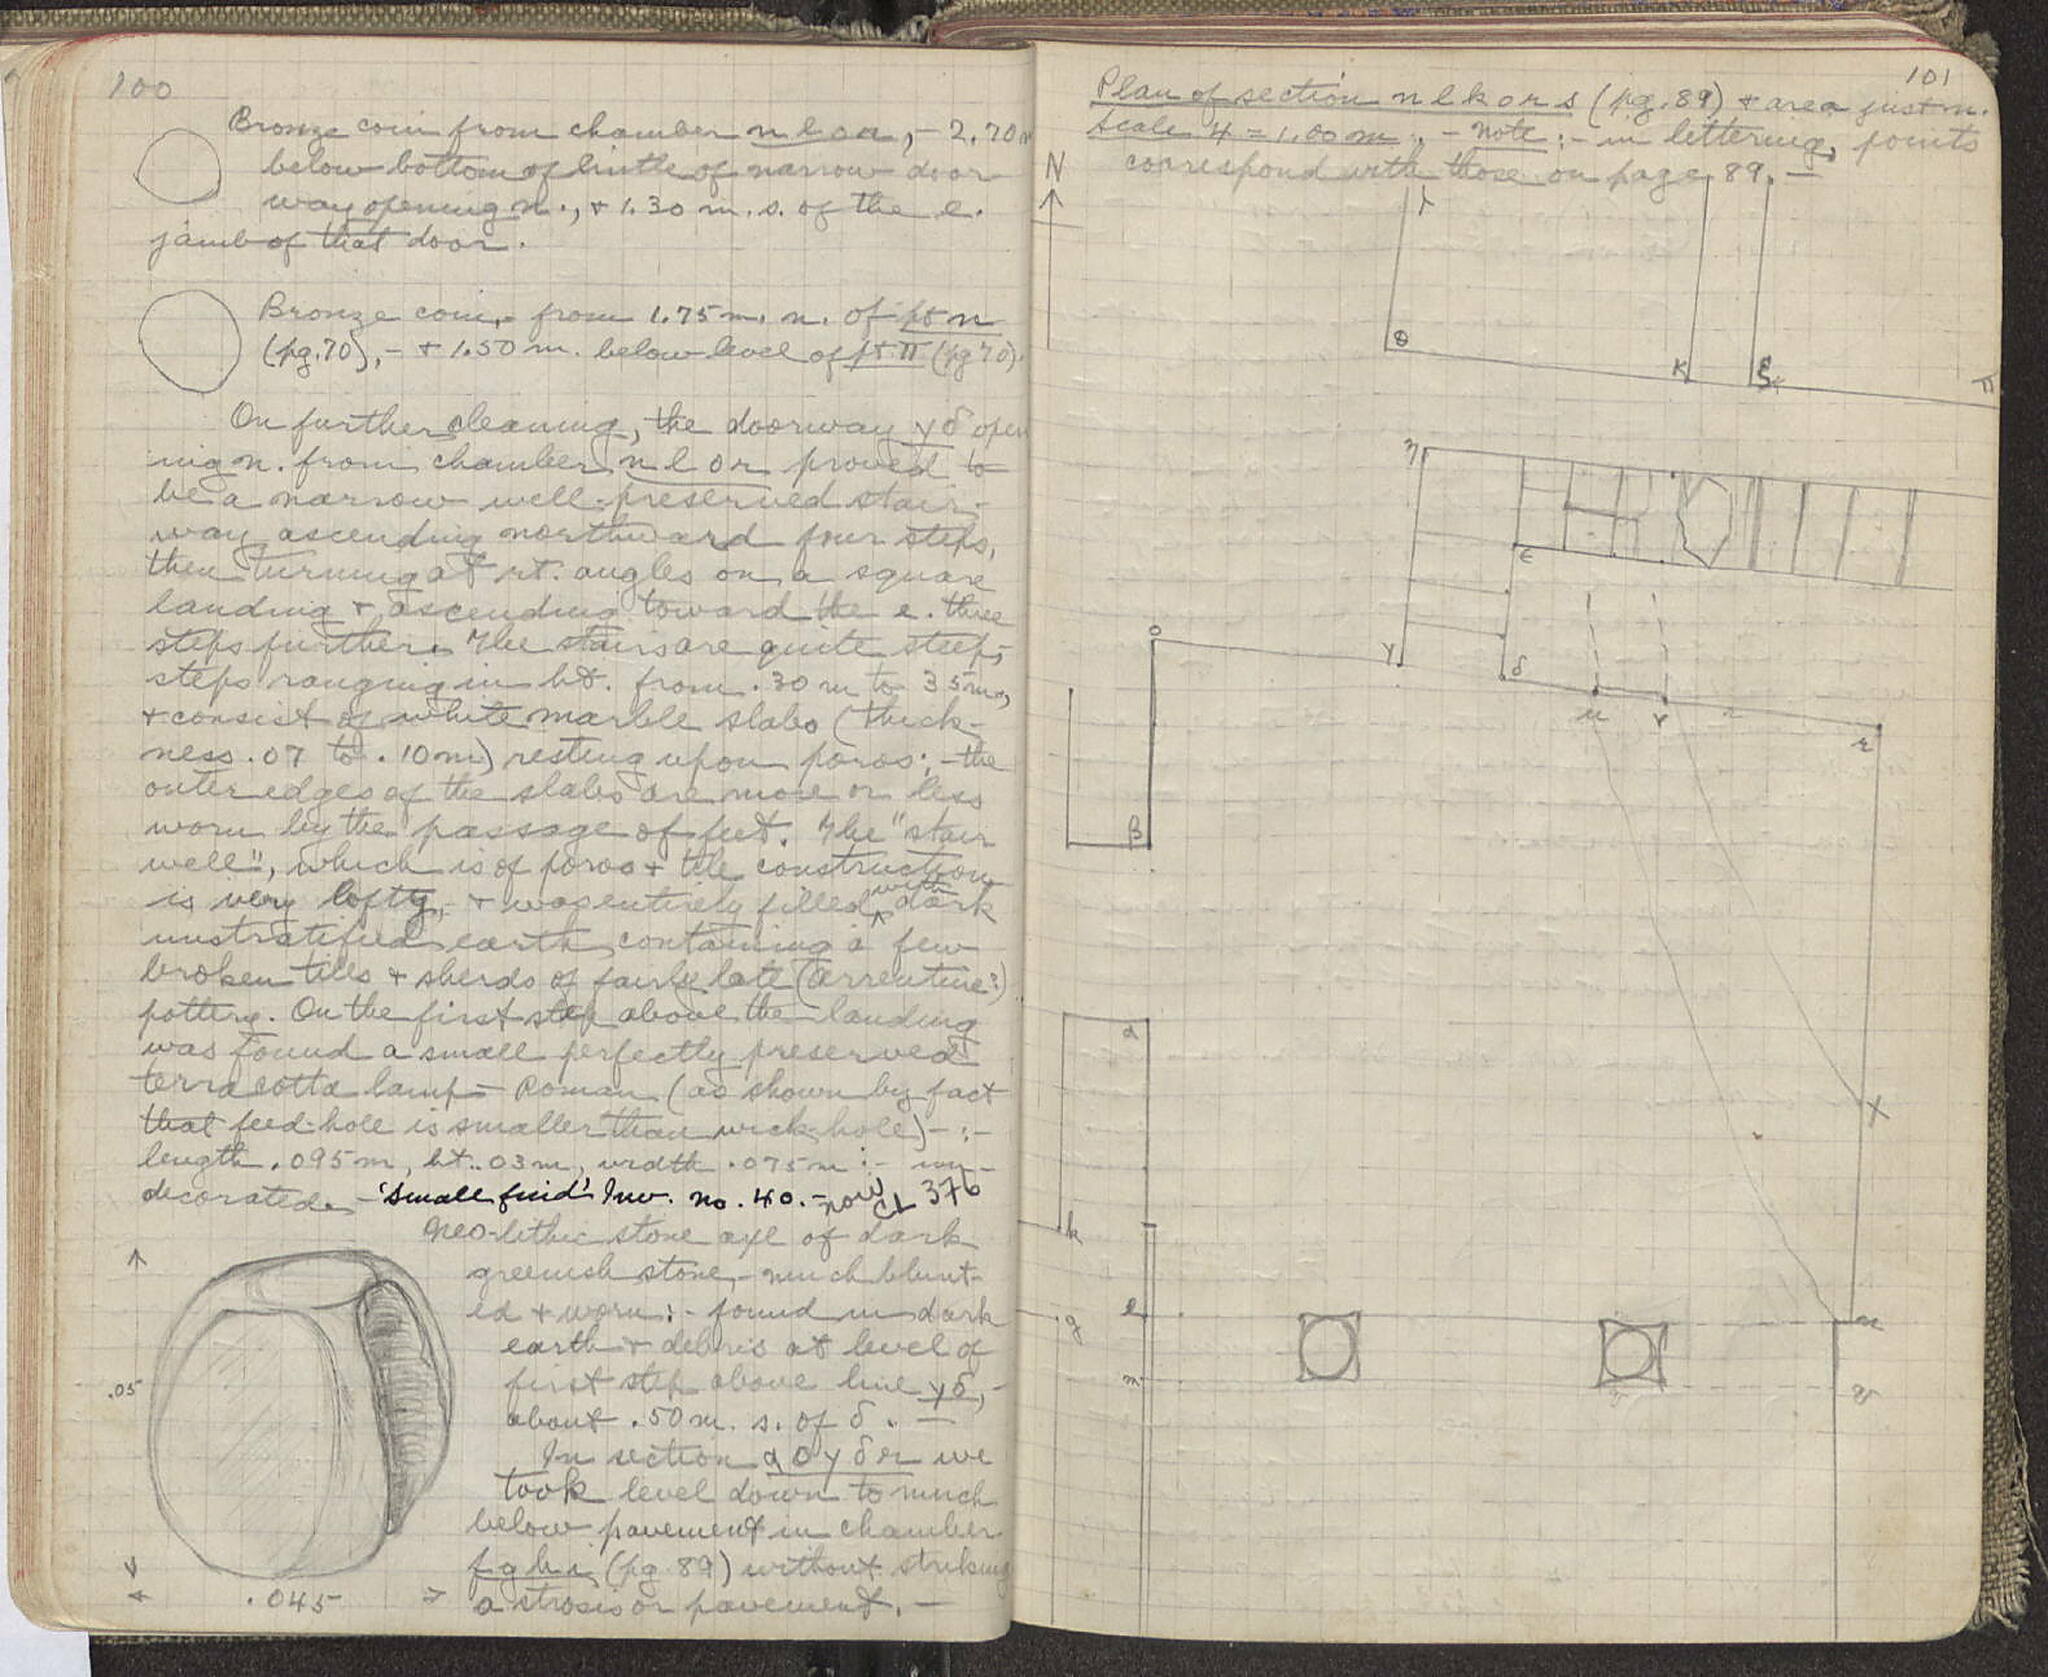 100
Bronze coin from chamber n l o a, - 2.70 m
below bottom of lintle of narrow door
way opening n., + 1.30 m. s. of the e.
jamb of that door.
Bronze coin, - from 1.75 m. n. of pt n
(pg. 70), - + 1.50 m. below level of pt π (pg 70).
On further cleaning, the doorway γδ open
ing n. from chamber n l o r proved to
be a narrow well-preserved stair-
way ascending northward four steps,
then turning at rt. angles on a square
landing + ascending toward the e. three
steps further. The stairs are quite steep,
steps ranging in ht. from .30 m to 35 m,
+ consist of white marble slabs (thick-
ness .07 to .10 m) resting upon poros; - the
outer edges of the slabs are more or less
worn by the passage of feet. The "stair
well", which is of poros + tile construction
is very lofty, - + was entirely filled with dark
unstratified earth containing a few
broken tiles + sherds of fairly late (arrentine?)
pottery. On the first step above the landing
was found a small perfectly preserved
terra cotta lamp - Roman (as shown by fact
that feed-hole is smaller than wick-hole) - : -
length .095 m, ht. .03 m, width .075 m : - un-
decorated. - 'Small find' Inv. no. 40. - now CL 376
Neo-lithic stone axe of dark
greenish stone, - much blunt-
ed + worn : - found in dark
earth + debris at level of
first step above line γδ, -
about .50 m. s. of δ. -
.05
In section α O γ δ r we
took level down to much
below pavement in chamber
f g h i (pg 89) without striking
a strosis or pavement. -
.045
101
Plan of section n l k o r s (pg. 89) + area just n.
Scale 4 = 1.00 m. - Note : - in lettering, points
correspond with those on page 89. -
N
θ
K
ξ
π
η
ε
O
γ
δ
u
r
β
α
X
k
l
g
n
m
v